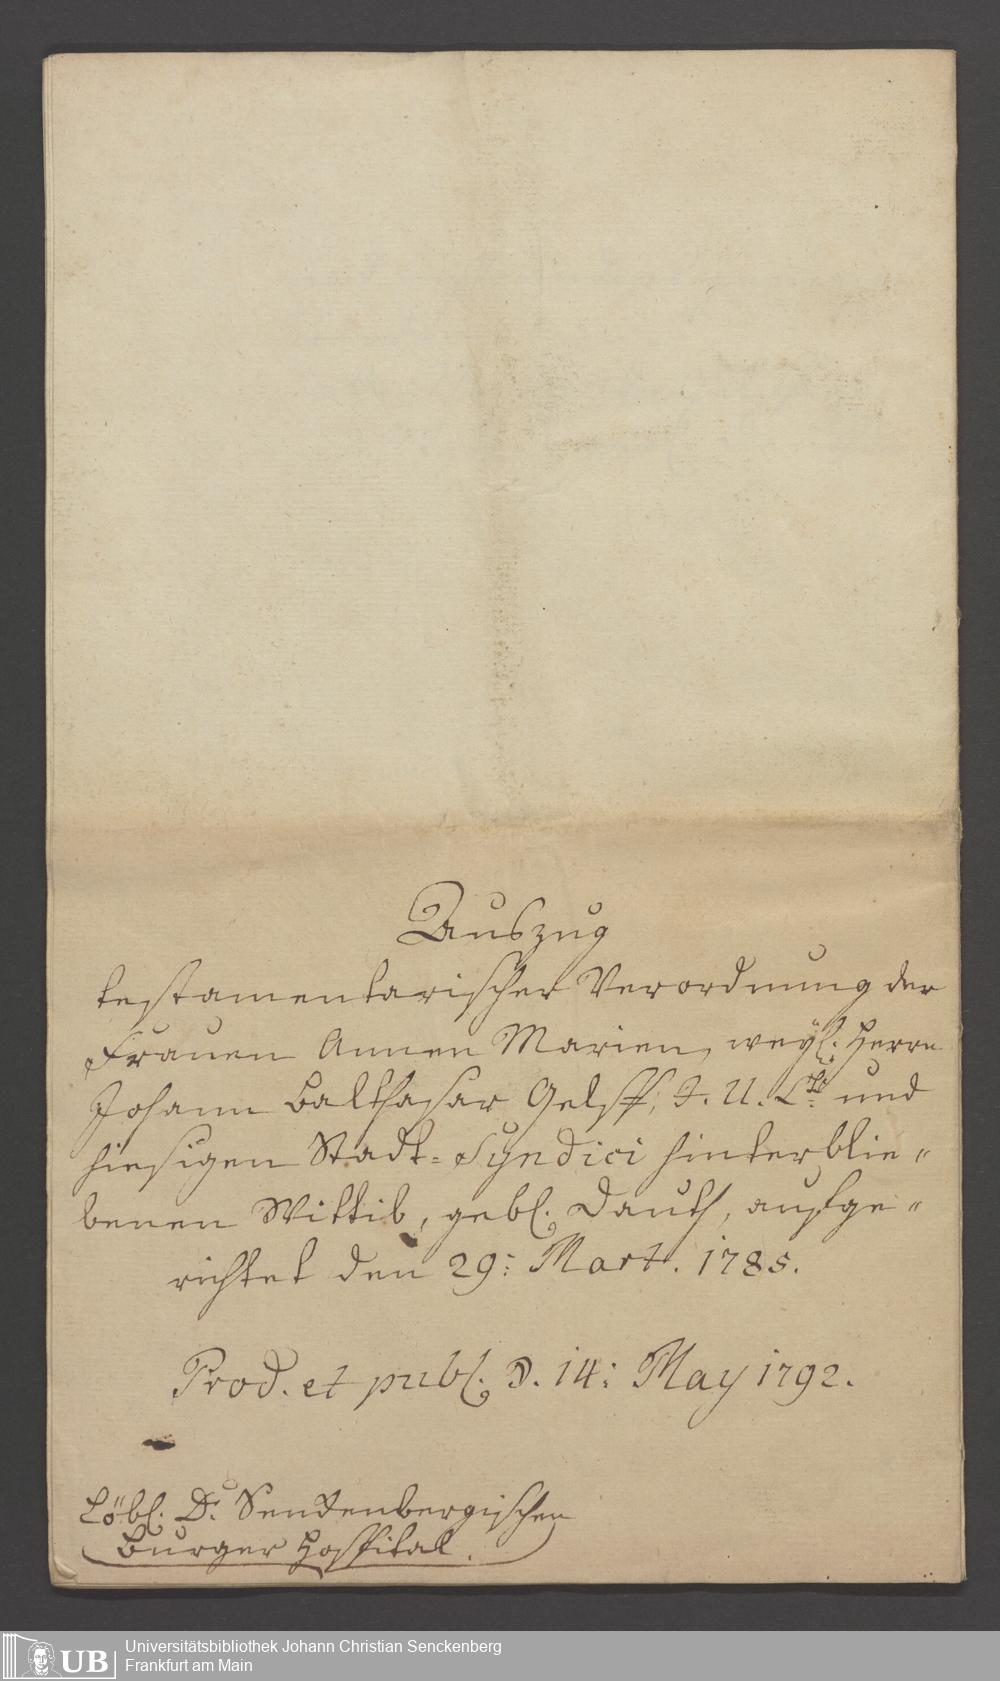 Auszug
testamentarischer Verordnung der
Frauen Annen Marien, weyl. Herrn
Johann Balthasar Gelff, J. U. Lti und
hiesigen Stadt-Syndici hinterblie„
benen Wittib, gebl. Dauth, aufge„
richtet den 29: Mart. 1785.
Prod. et publ. d. 14: May 1792.
Löbl. Dr. Senckenbergischen
Burger Hospital.
UB
Universitätsbibliothek Johann Christian Senckenberg
Frankfurt am Main